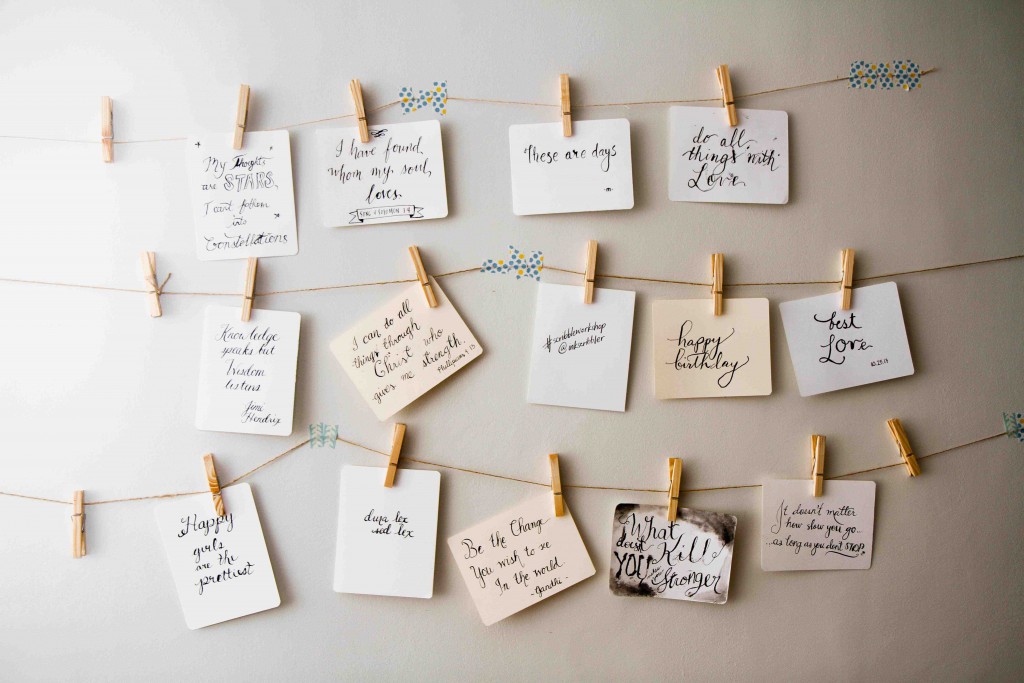 My Thoghts
are STARS.
I cant fathom
into
Constellations
I have found
whom my soul
loves.
SONG OF SOLOMON 3:4
These are days
do all
things with
Love
Knowledge
speaks but
Wisdom
listens
Jimi
Hendrix
I can do all
things through
Christ who
gives me strength.
Phillipians 4:13
#scribbleworkshop
@inkscribbler
happy
birthday
best
Love
Happy
girls
are the
prettiest
dura lex
sed lex
Be the Change
You wish to see
In the world
-Gandhi-
What
doesn't Kill
YOU
Stronger
It doesn't matter
how slow you go...
...as long as you dont STOP.